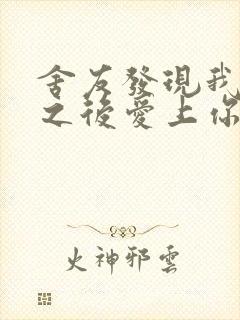 舍友發現我
之後愛上你
火神邪雲